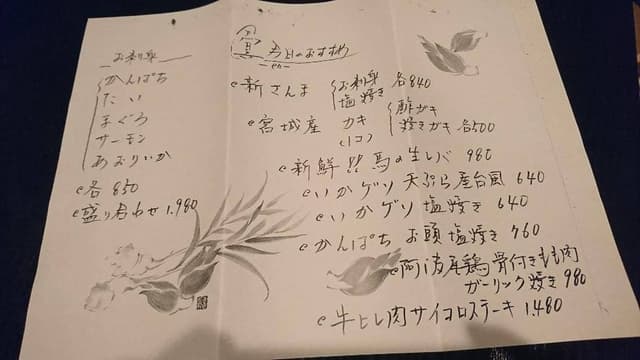 お刺身
かんぱち
たい
まぐろ
サーモン
あおりいか
各850
盛り合わせ 1.980
本日のおすすめ
新さんま お刺身 各840
塩焼き
宮城産 カキ 酢ガキ
(1コ) 焼きガキ 各500
新鮮!! 馬の生レバ 980
いかゲソ 天ぷら屋台風 640
いかゲソ 塩焼き 640
かんぱち お頭塩焼き 760
阿波尾鶏 骨付きもも肉
ガーリック焼き 980
牛ヒレ肉サイコロステーキ 1.480